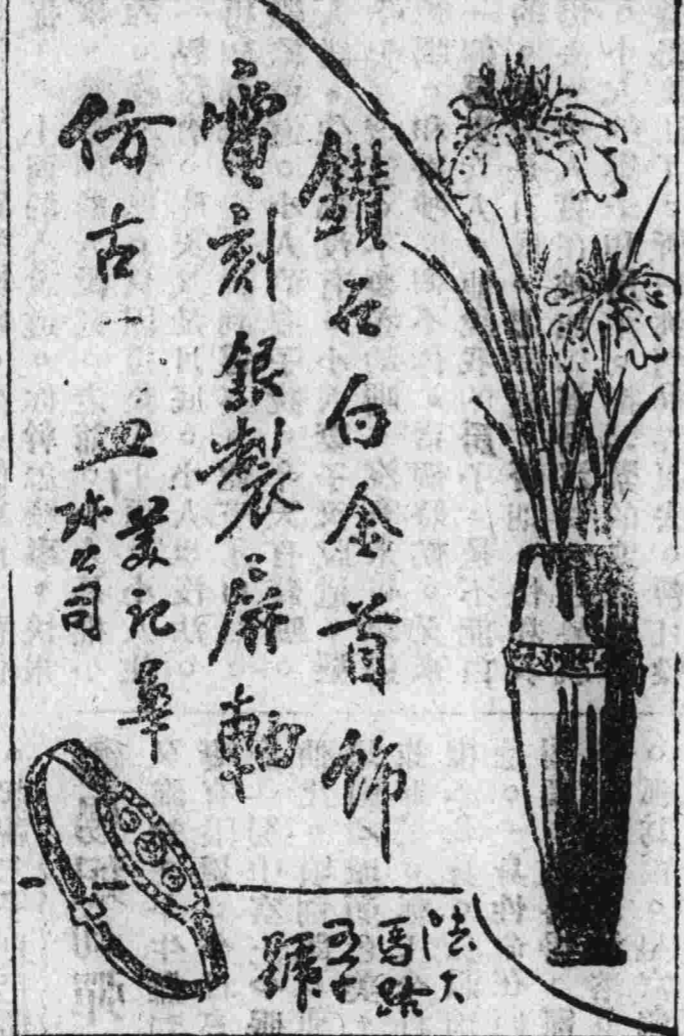 鑽石白金首飾
電刻銀製屏軸
仿古一皿
記華
公司
法大
馬路
號